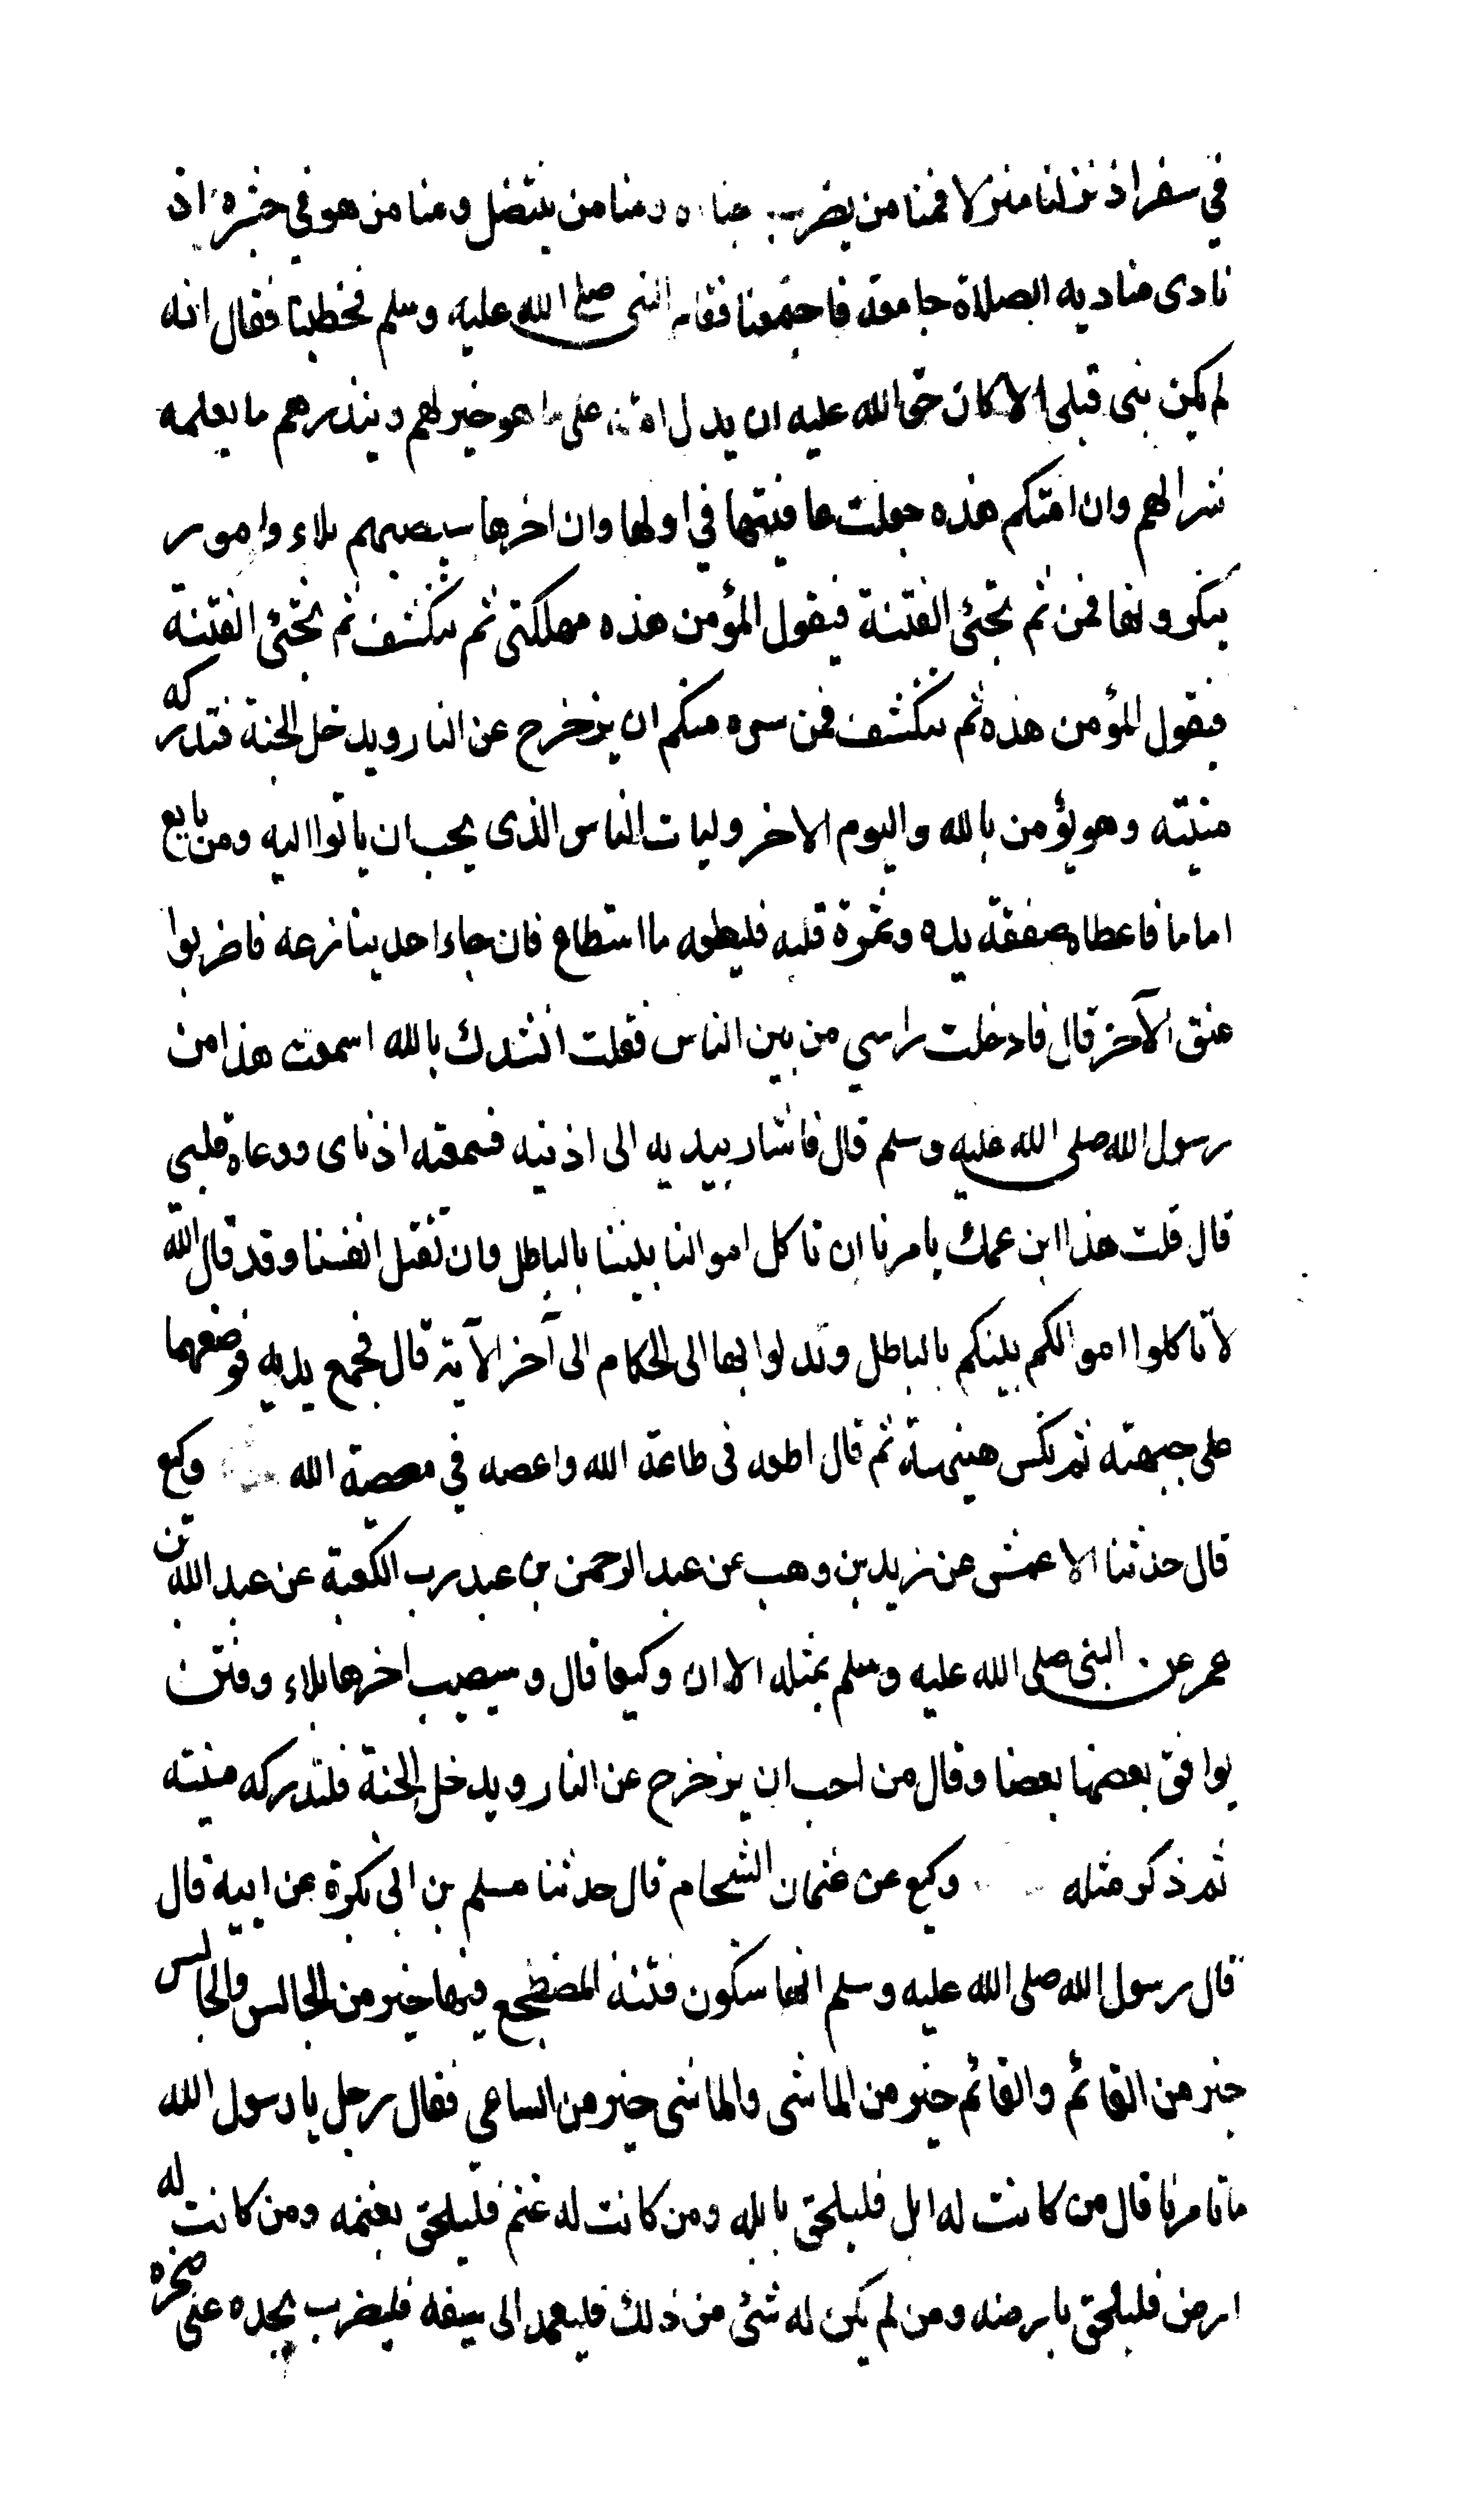 في سفر اذ نزلنا منزلا فمنا من يضرب خباه ومنا من ينتضل ومنا من هو في جشره اذ
نادى مناديه الصلاة جامعة فاجتمعنا فقام النبى صلى الله عليه وسلم فخطبنا فقال انه
لم يكن نبى قبلى الا كان حق الله عليه ان يدل امته على ما هو خير لهم وينذرهم ما يعلمه
شرا لهم وان امتكم هذه جعلت عافيتها في اولها وان اخرها سيصيبهم بلاء وامور
ينكرونها فمن ثم تجئ الفتنة فيقول المؤمن هذه مهلكتى ثم تنكشف ثم تجئ الفتنة
فيقول المؤمن هذه ثم تنكشف فمن سره منكم ان يزحزح عن النار ويدخل الجنة فتدركه
منيته وهو يؤمن بالله واليوم الاخر وليات الناس الذى يحب ان ياتوا اليه ومن بايع
اماما فاعطاه صفقة يده وثمرة قلبه فليطعه ما استطاع فان جاء احد ينازعه فاضربوا
عنق الآخر قال فادخلت راسي من بين الناس فقلت انشدك بالله اسمعت هذا من
رسول الله صلى الله عليه وسلم قال فاشار بيديه الى اذنيه فسمعته اذناى ووعاه قلبى
قال قلت هذا ابن عمك يامرنا ان ناكل اموالنا بيننا بالباطل وان نقتل انفسنا وقد قال الله
لا تاكلوا اموالكم بينكم بالباطل وتدلوا بها الى الحكام الى آخر الآية قال فجمع يديه فوضعهما
على جبهته ثم نكس هنيهة ثم قال اطعه فى طاعة الله واعصه في معصية الله وكيع
قال حدثنا الاعمش عن زيد بن وهب عن عبد الرحمن بن عبد رب الكعبة عن عبد الله بن
عمر عن النبى صلى الله عليه وسلم بمثله الا ان وكيعا قال وسيصيب اخرها بلاء وفتن
يوافق بعضها بعضا وقال من احب ان يزحزح عن النار ويدخل الجنة فلتدركه منيته
ثم ذكر مثله وكيع عن عثمان الشحام قال حدثنا مسلم بن ابى بكرة عن ابيه قال
قال رسول الله صلى الله عليه وسلم انها ستكون فتنة المضطجع فيها خير من الجالس والجالس
خير من القائم والقائم خير من الماشى والماشى خير من الساعي فقال رجل يا رسول الله
ما تامرنا قال من كانت له ابل فليلحق بابله ومن كانت له غنم فليلحق بغنمه ومن كانت له
ارض فليلحق بارضه ومن لم يكن له شئ من ذلك فليعمد الى سيفه فليضرب بحده على صخرة